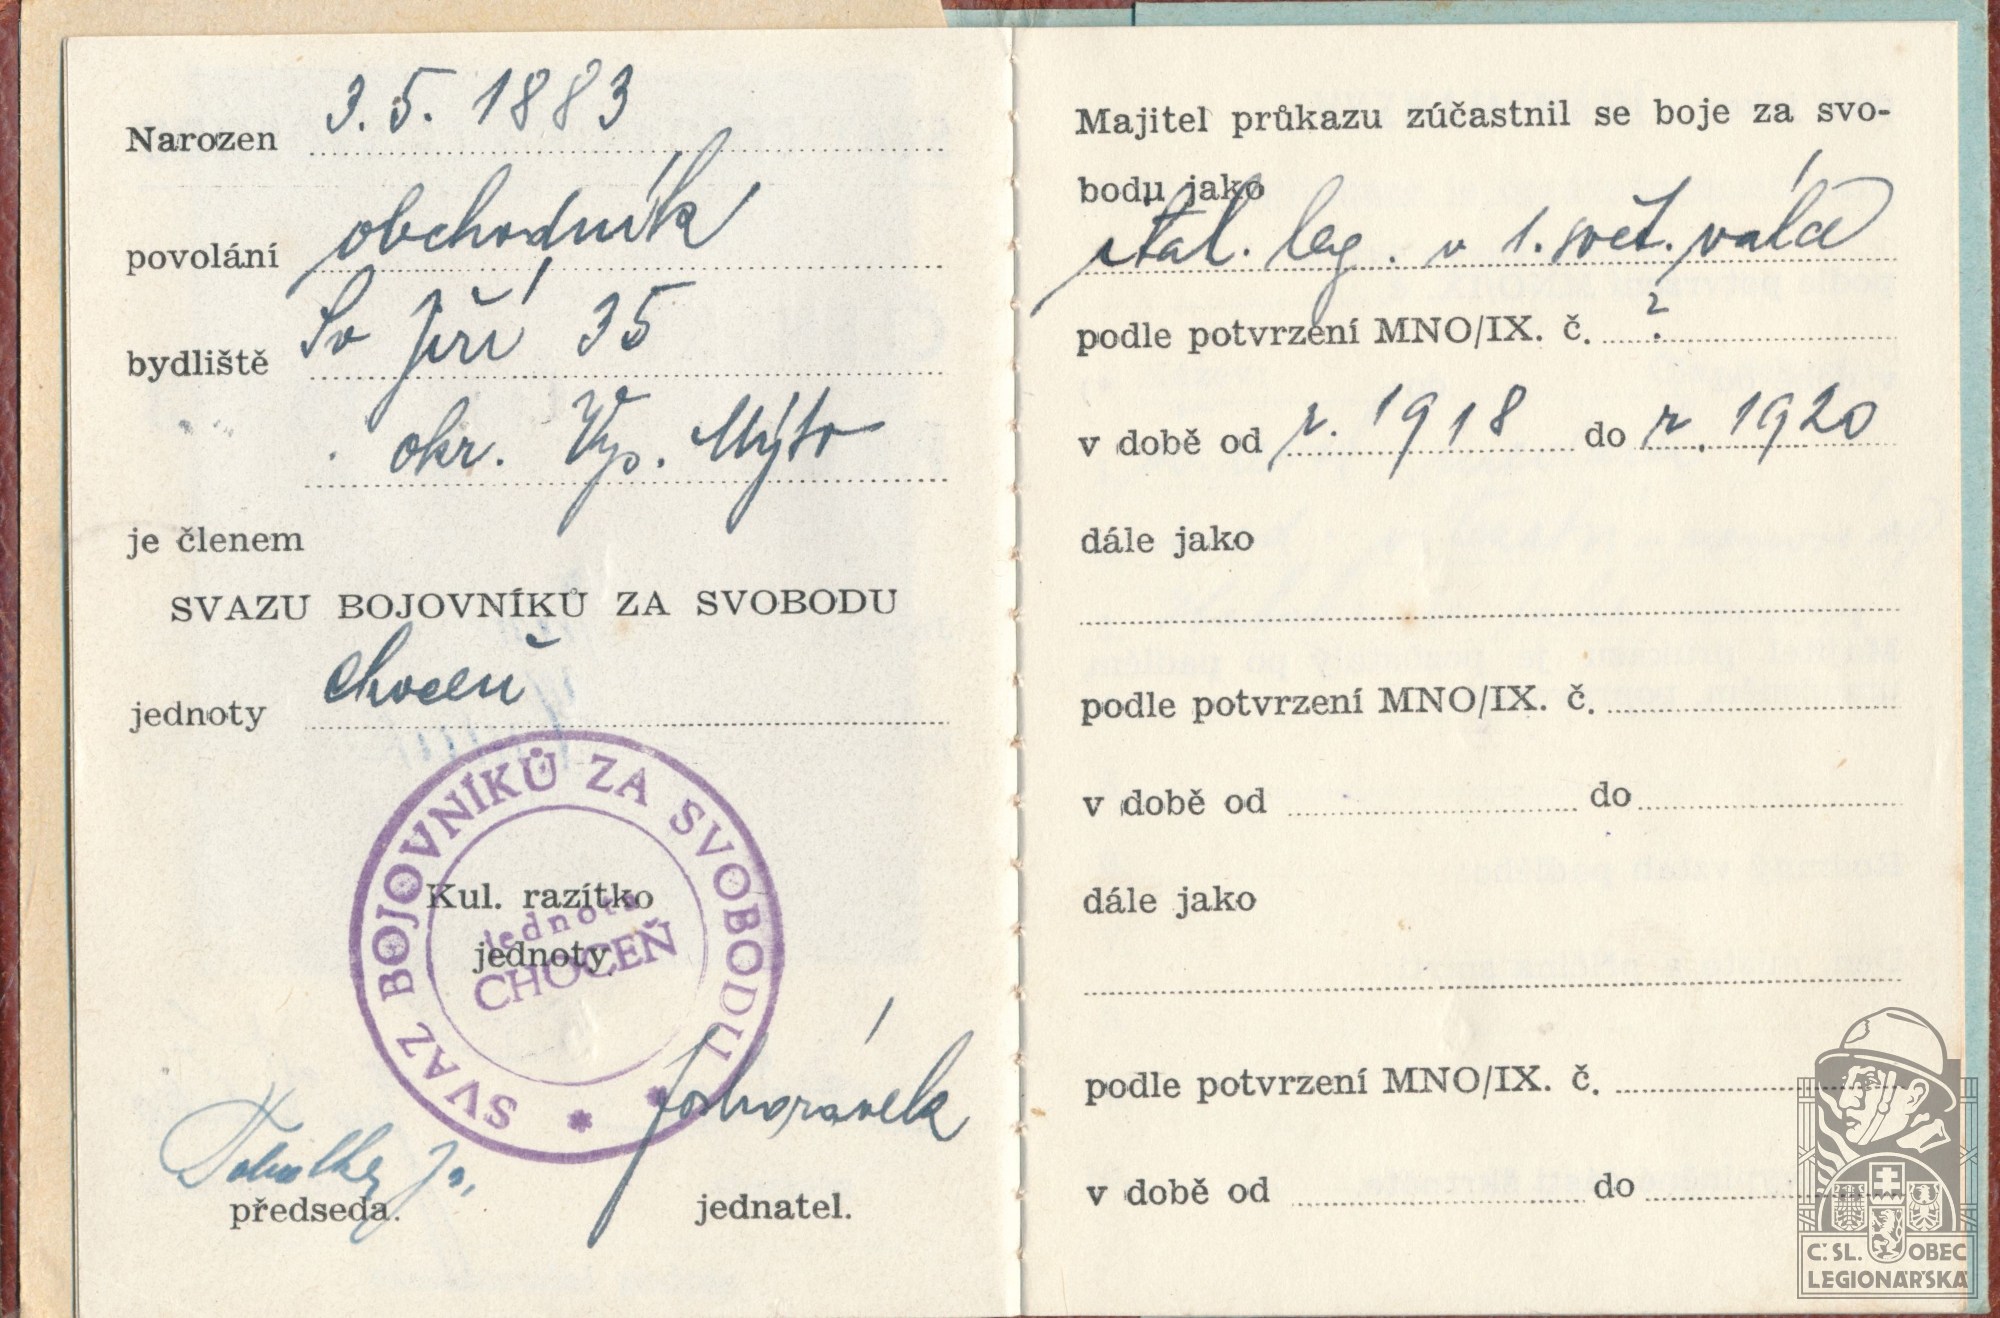 Narozen 3. 5. 1883
povolání obchodník
bydliště Sv Jiří 35
okr. Vys. Mýto
je členem
SVAZU BOJOVNÍKŮ ZA SVOBODU
jednoty Choceň
SVAZ BOJOVNÍKŮ ZA SVOBODU
Kul. razítko
jednota
jednoty
CHOCEŇ
předseda.
jednatel.
Majitel průkazu zúčastnil se boje za svo-
bodu jako
ital. leg. v 1. svět. válce
podle potvrzení MNO/IX. č. ?
v době od r. 1918 do r. 1920
dále jako
podle potvrzení MNO/IX. č.
v době od do
dále jako
podle potvrzení MNO/IX. č.
v době od do
Č. SL. OBEC
LEGIONÁŘSKÁ